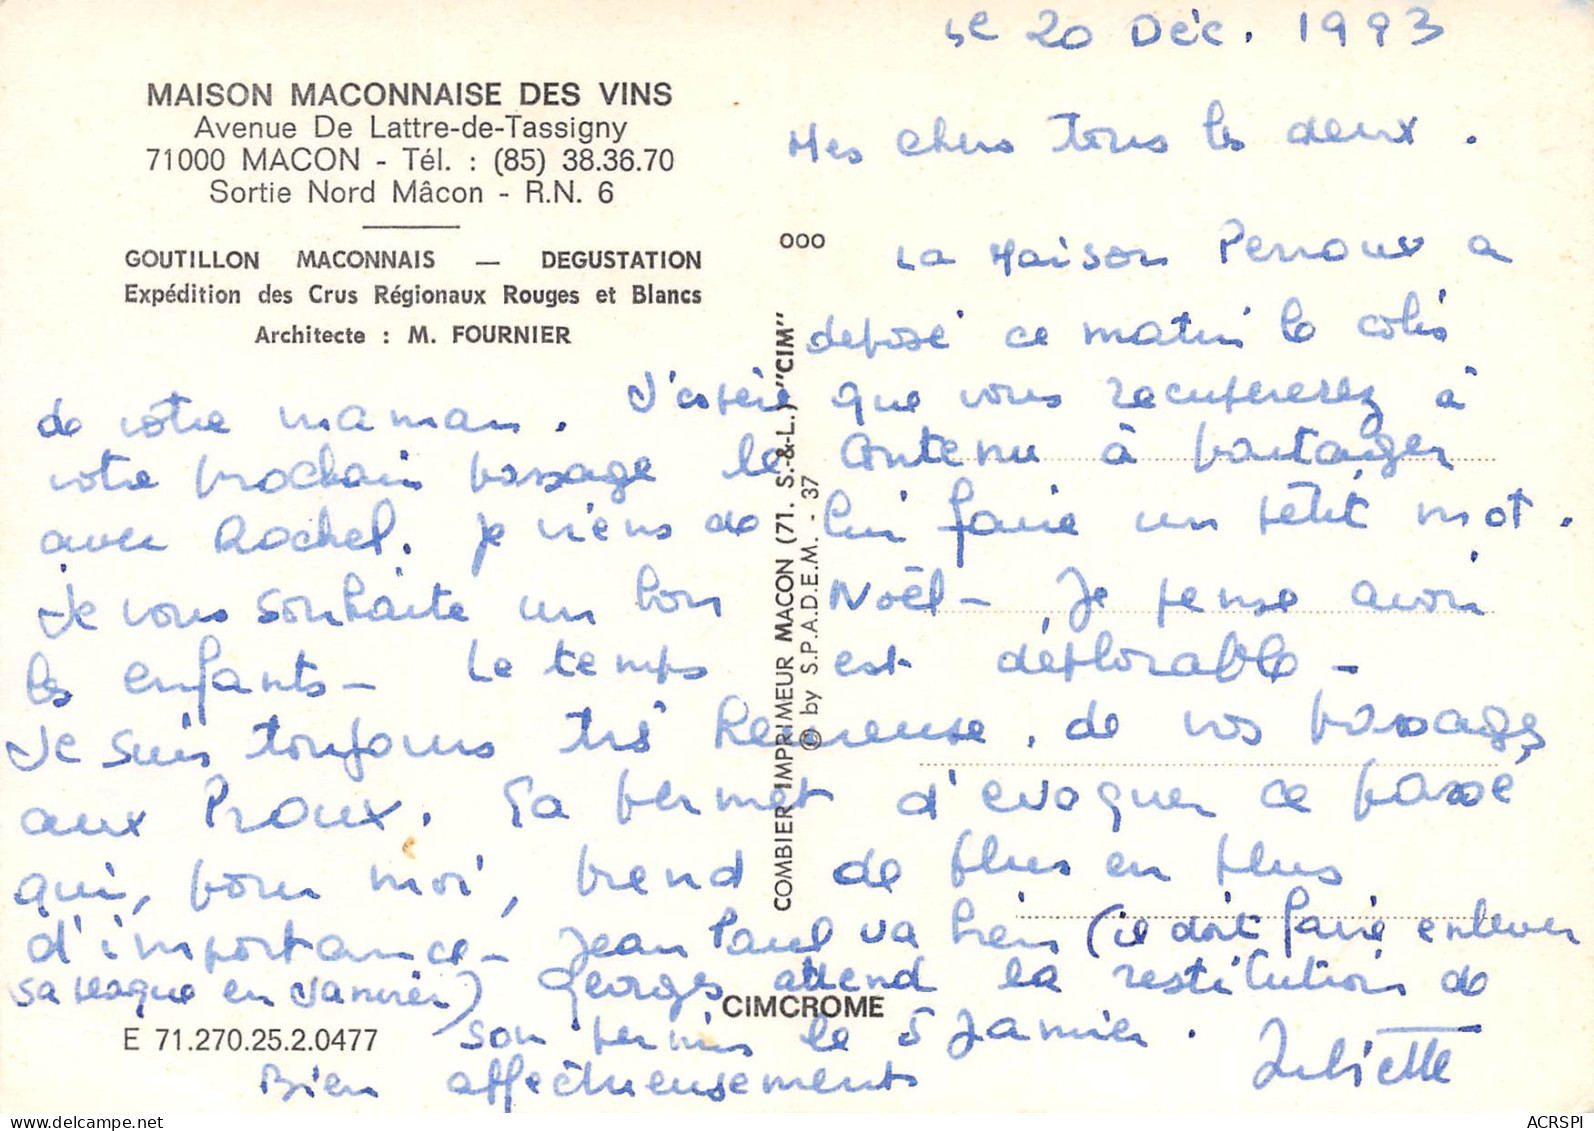 MAISON MACONNAISE DES VINS
Avenue De Lattre-de-Tassigny
71000 MACON - Tél. : (85) 38.36.70
Sortie Nord Mâcon - R.N. 6
GOUTILLON MACONNAIS — DEGUSTATION
Expédition des Crus Régionaux Rouges et Blancs
Architecte : M. FOURNIER
Le 20 Déc. 1993
Mes chers tous les deux.
La Maison Perroux a
déposé ce matin le colis
de votre maman. J'espère que vous recupererez à
votre prochain passage le contenu à partager
avec Rachel. Je viens de lui faire un petit mot.
Je vous souhaite un bon Noël - Je pense avoir
les enfants - Le temps est déplorable -
Je suis toujours très heureuse, de vos passages
aux Proux. Ça permet d'evoquer ce passé
qui, pour moi, prend de plus en plus
d'importance - Jean Paul va bien (il doit faire enlever
sa plaque en Janvier) Georges attend la restitution de
son permis le 5 Janvier.
Bien affectueusement Juliette
ooo
COMBIER IMPRIMEUR MACON (71. S.-&-L.) "CIM"
© by S.P.A.D.E.M. - 37
CIMCROME
E 71.270.25.2.0477
ACRSPI